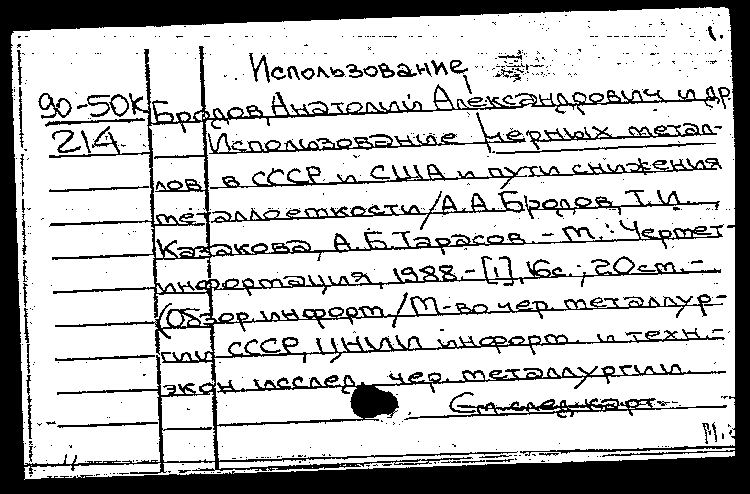 1.
Использование
90-50К Бродов, Анатолий Александрович и др.
214 Использование черных метал-
лов в СССР и США и пути снижения
металлоемкости/А.А.Бродов, Т.И.
Казакова, А.Б.Тарасов. - М.: Чермет-
информация, 1988. - [1], 16с.; 20см. -
(Обзор. информ./М-во чер. металлур-
гии СССР, ЦНИИ информ. и техн.-
экон. исслед. чер. металлургии.
См. след. карт.